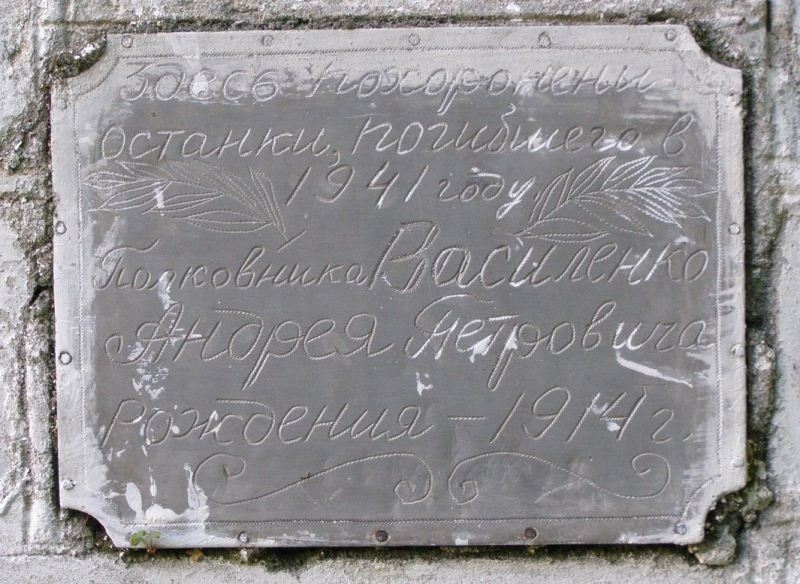 Здесь похоронены
останки, погибшего в
1941 году
Полковника Василенко
Андрея Петровича
рождения - 1914 г.